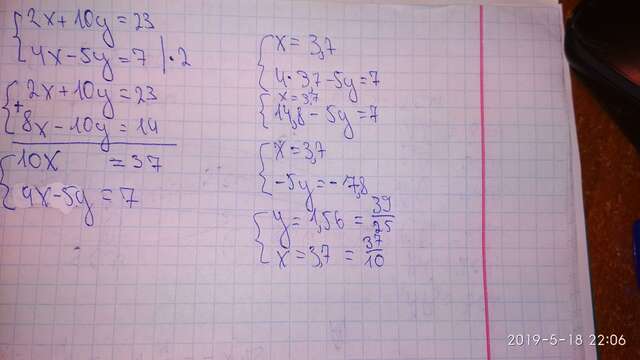 2x+10y=23
4x-5y=7 |·2
2x+10y=23
+
8x-10y=14
10x =37
4x-5y=7
x=3,7
4·3,7-5y=7
x=3,7
14,8-5y=7
x=3,7
-5y=-7,8
y=1,56=39/25
x=3,7=37/10
2019-5-18 22:06